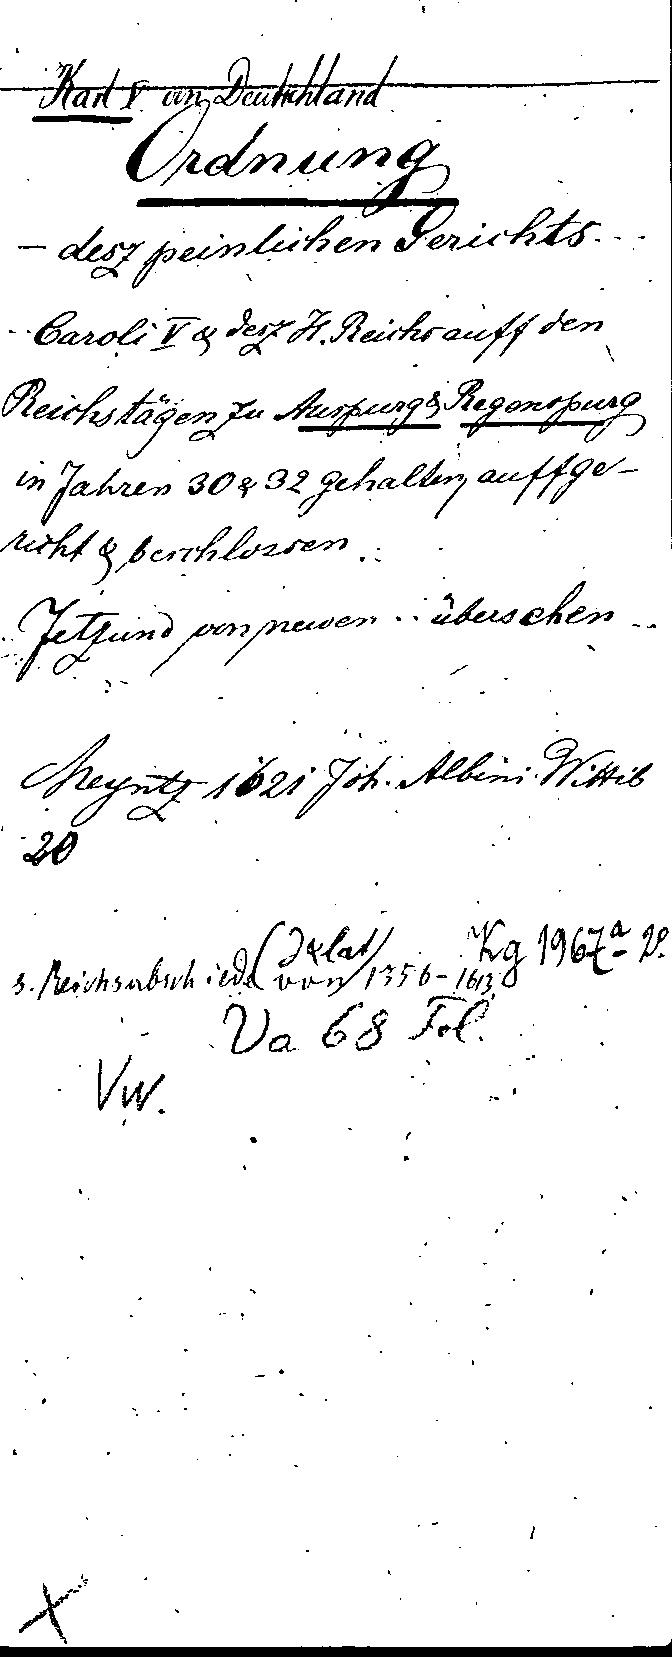 Karl V von Deutschland
Ordnung
- desz peinlichen Gerichts...
.. Caroli V & desz H. Reichs auff den
Reichstägen zu Auspurg & Regenspurg
in Jahren 30 & 32 gehalten, auffge-
richt & beschlossen ..
.. Jetzund von newen .. übersehen ..
Meyntz 1621 Joh. Albini Wittib
20
Kg 1967a
s. Reichsabschiede (von 1356-1613
Va 68 Fol.
VW.